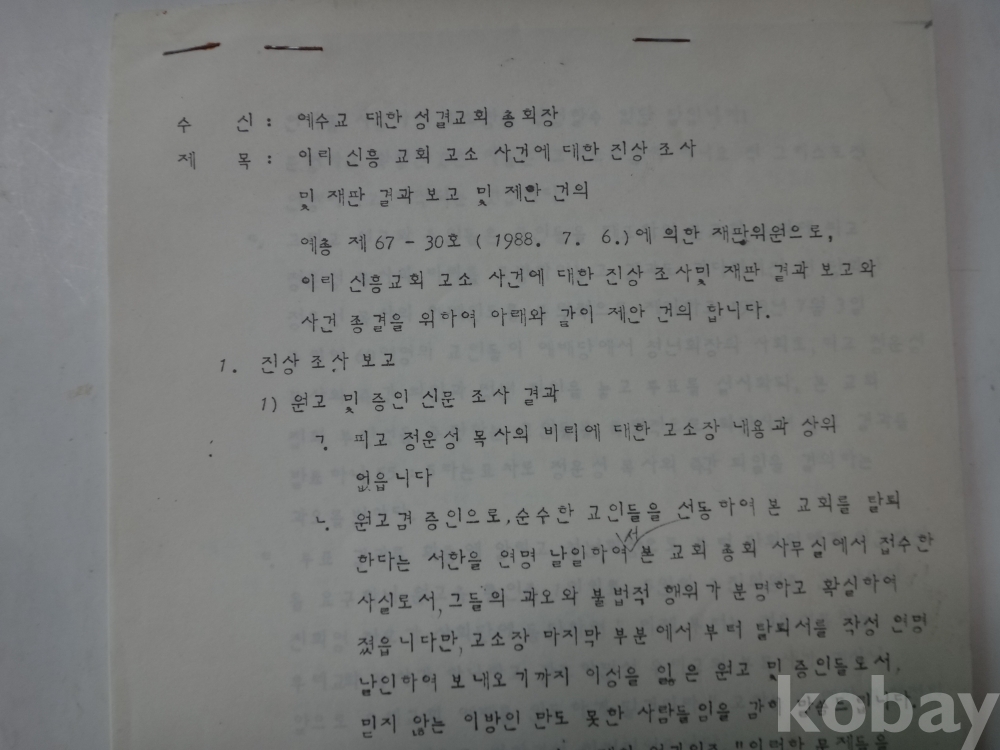 수 신 : 예수교 대한 성결교회 총회장
제 목 : 이리 신흥 교회 고소 사건에 대한 진상 조사
및 재판 결과 보고 및 제안 건의
예총 제 67 - 30호 ( 1988. 7. 6.) 에 의한 재판위원으로,
이리 신흥교회 고소 사건에 대한 진상 조사및 재판 결과 보고와
사건 종결을 위하여 아래와 같이 제안 건의 합니다.
1. 진상 조사 보고
1) 원고 및 증인 신문 조사 결과
ㄱ. 피고 정운성 목사의 비리에 대한 고소장 내용과 상위
없읍니다
ㄴ. 원고겸 증인으로, 순수한 교인들을 선동하여 본 교회를 탈퇴
한다는 서한을 연명 날인하여서 본 교회 총회 사무실에서 접수한
사실로서, 그들의 과오와 불법적 행위가 분명하고 확실하여
졌읍니다만, 고소장 마지막 부분에서 부터 탈퇴서를 작성 연명
날인하여 보내오기까지 이성을 잃은 원고 및 증인들로서,
믿지 않는 이방인 만도 못한 사람들임을 감히
kobay